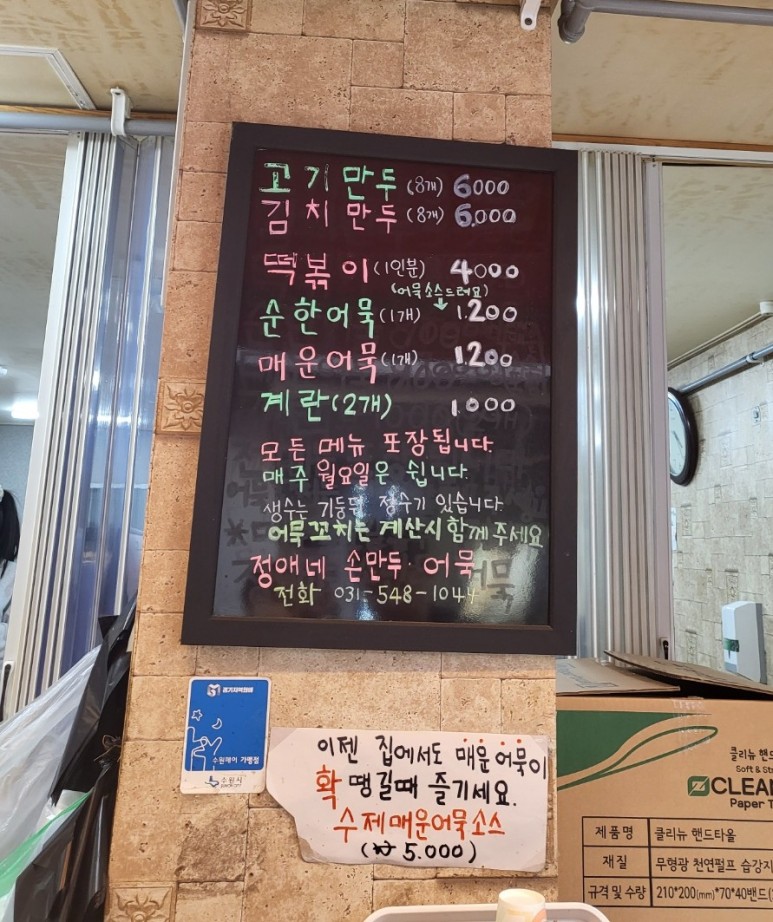 고기만두 (8개) 6000
김치만두 (8개) 6.000
떡볶이 (1인분) 4000
(어묵소스드려요)
순한어묵 (1개) 1.200
매운어묵 (1개) 1.200
계란 (2개) 1.000
모든 메뉴 포장됩니다.
매주 월요일은 쉽니다.
생수는 기둥뒤 정수기 있습니다.
어묵꼬치는 계산시 함께 주세요
정애네 손만두·어묵
전화 031-548-1044
경기지역화폐
수원페이 가맹점
수원시
이젠 집에서도 매운어묵이
확 땡길때 즐기세요.
수제매운어묵소스
(₩ 5.000)
클리뉴 핸드
Soft & St
CLEA
Paper T
제품명 클리뉴 핸드타올
재질 무형광 천연펄프 습강지
규격 및 수량 210*200(mm)*70*40밴드(